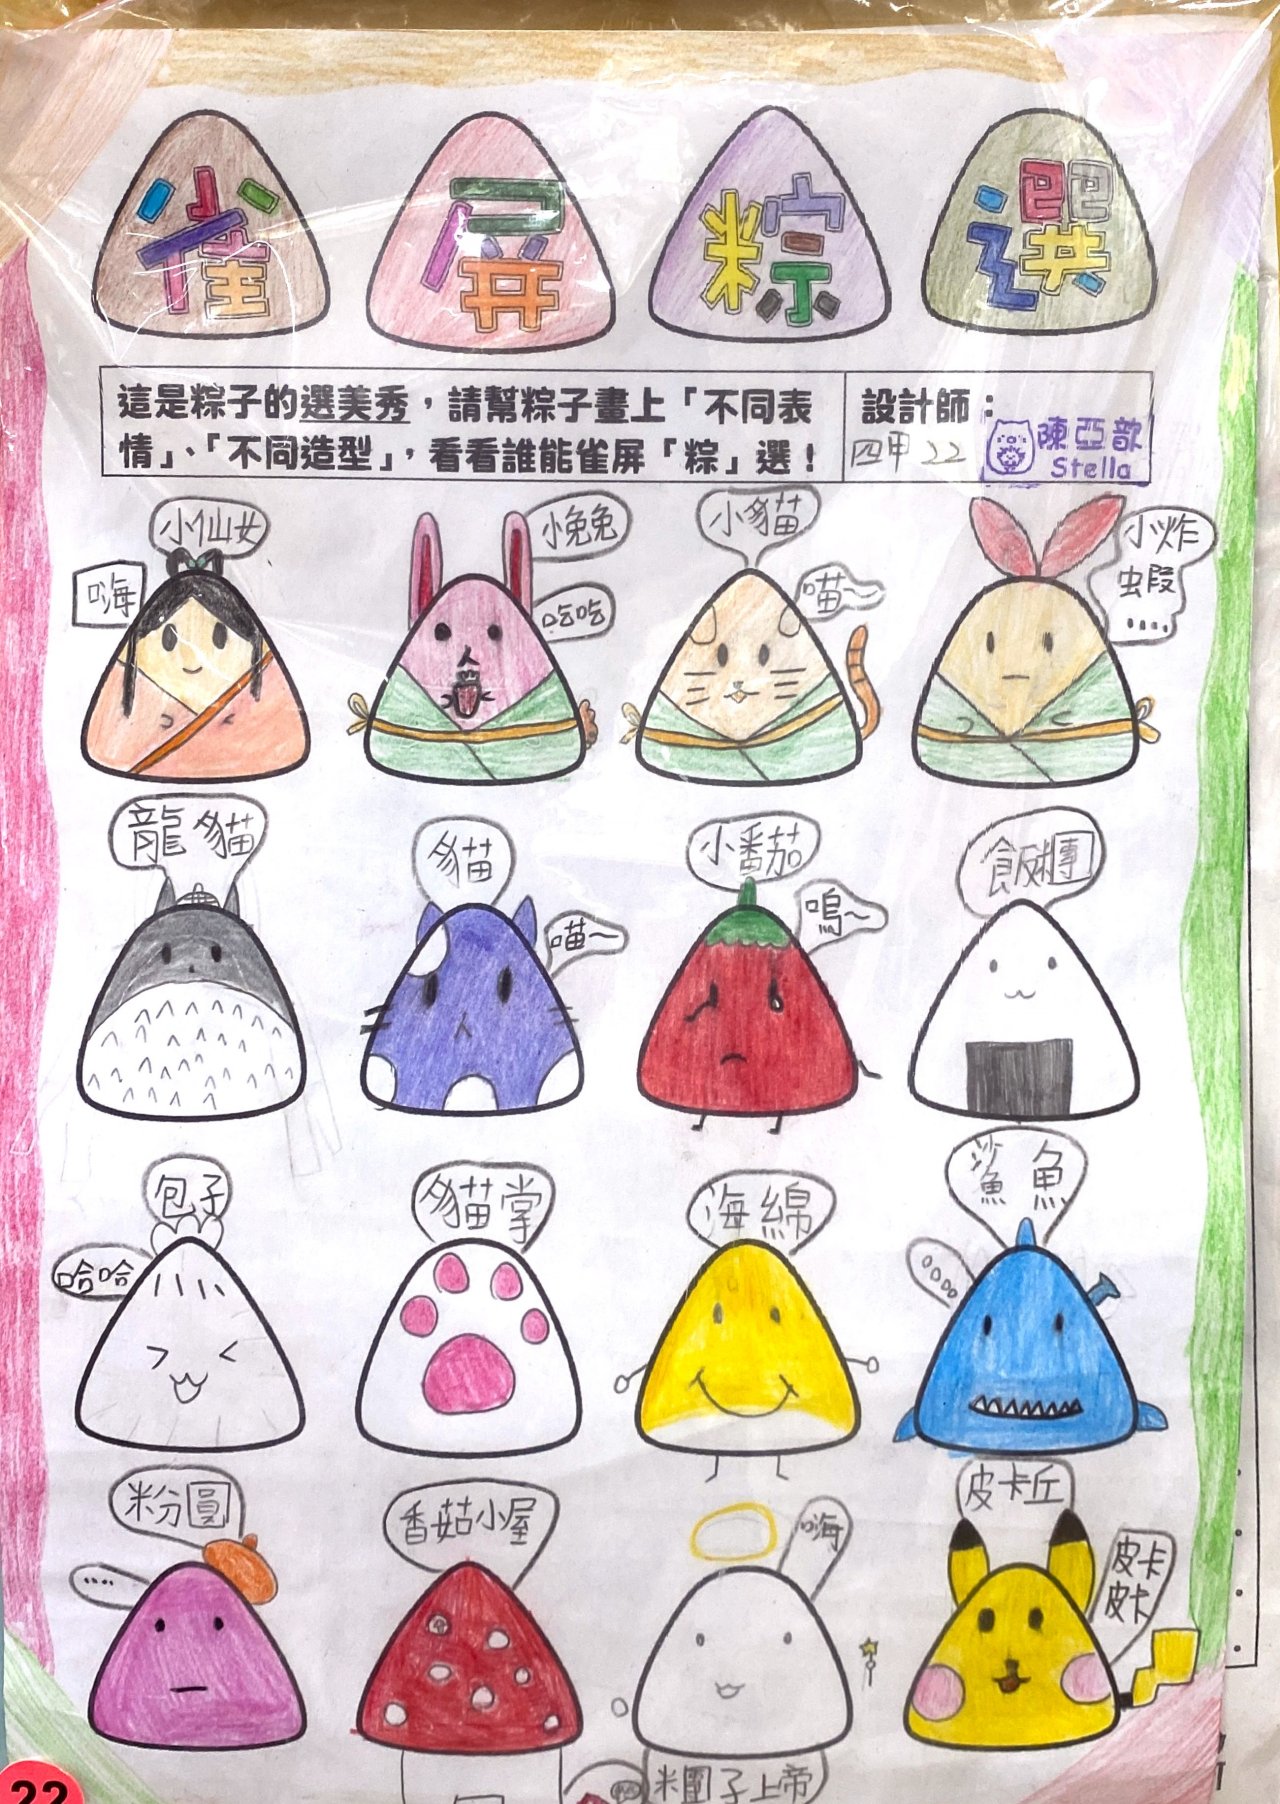 雀屏粽選
這是粽子的選美秀，請幫粽子畫上「不同表
情」、「不同造型」，看看誰能雀屏「粽」選！
設計師：
四甲 22
陳亞歆
Stella
小仙女
嗨
小兔兔
吃吃
小貓
喵～
小炸
蝦
.....
龍貓
貓
喵～
小番茄
嗚～
飯糰
包子
哈哈
貓掌
海綿
鯊魚
。。。。
粉圓
....
香菇小屋
嗨
米團子上帝
皮卡丘
皮卡
皮卡
22